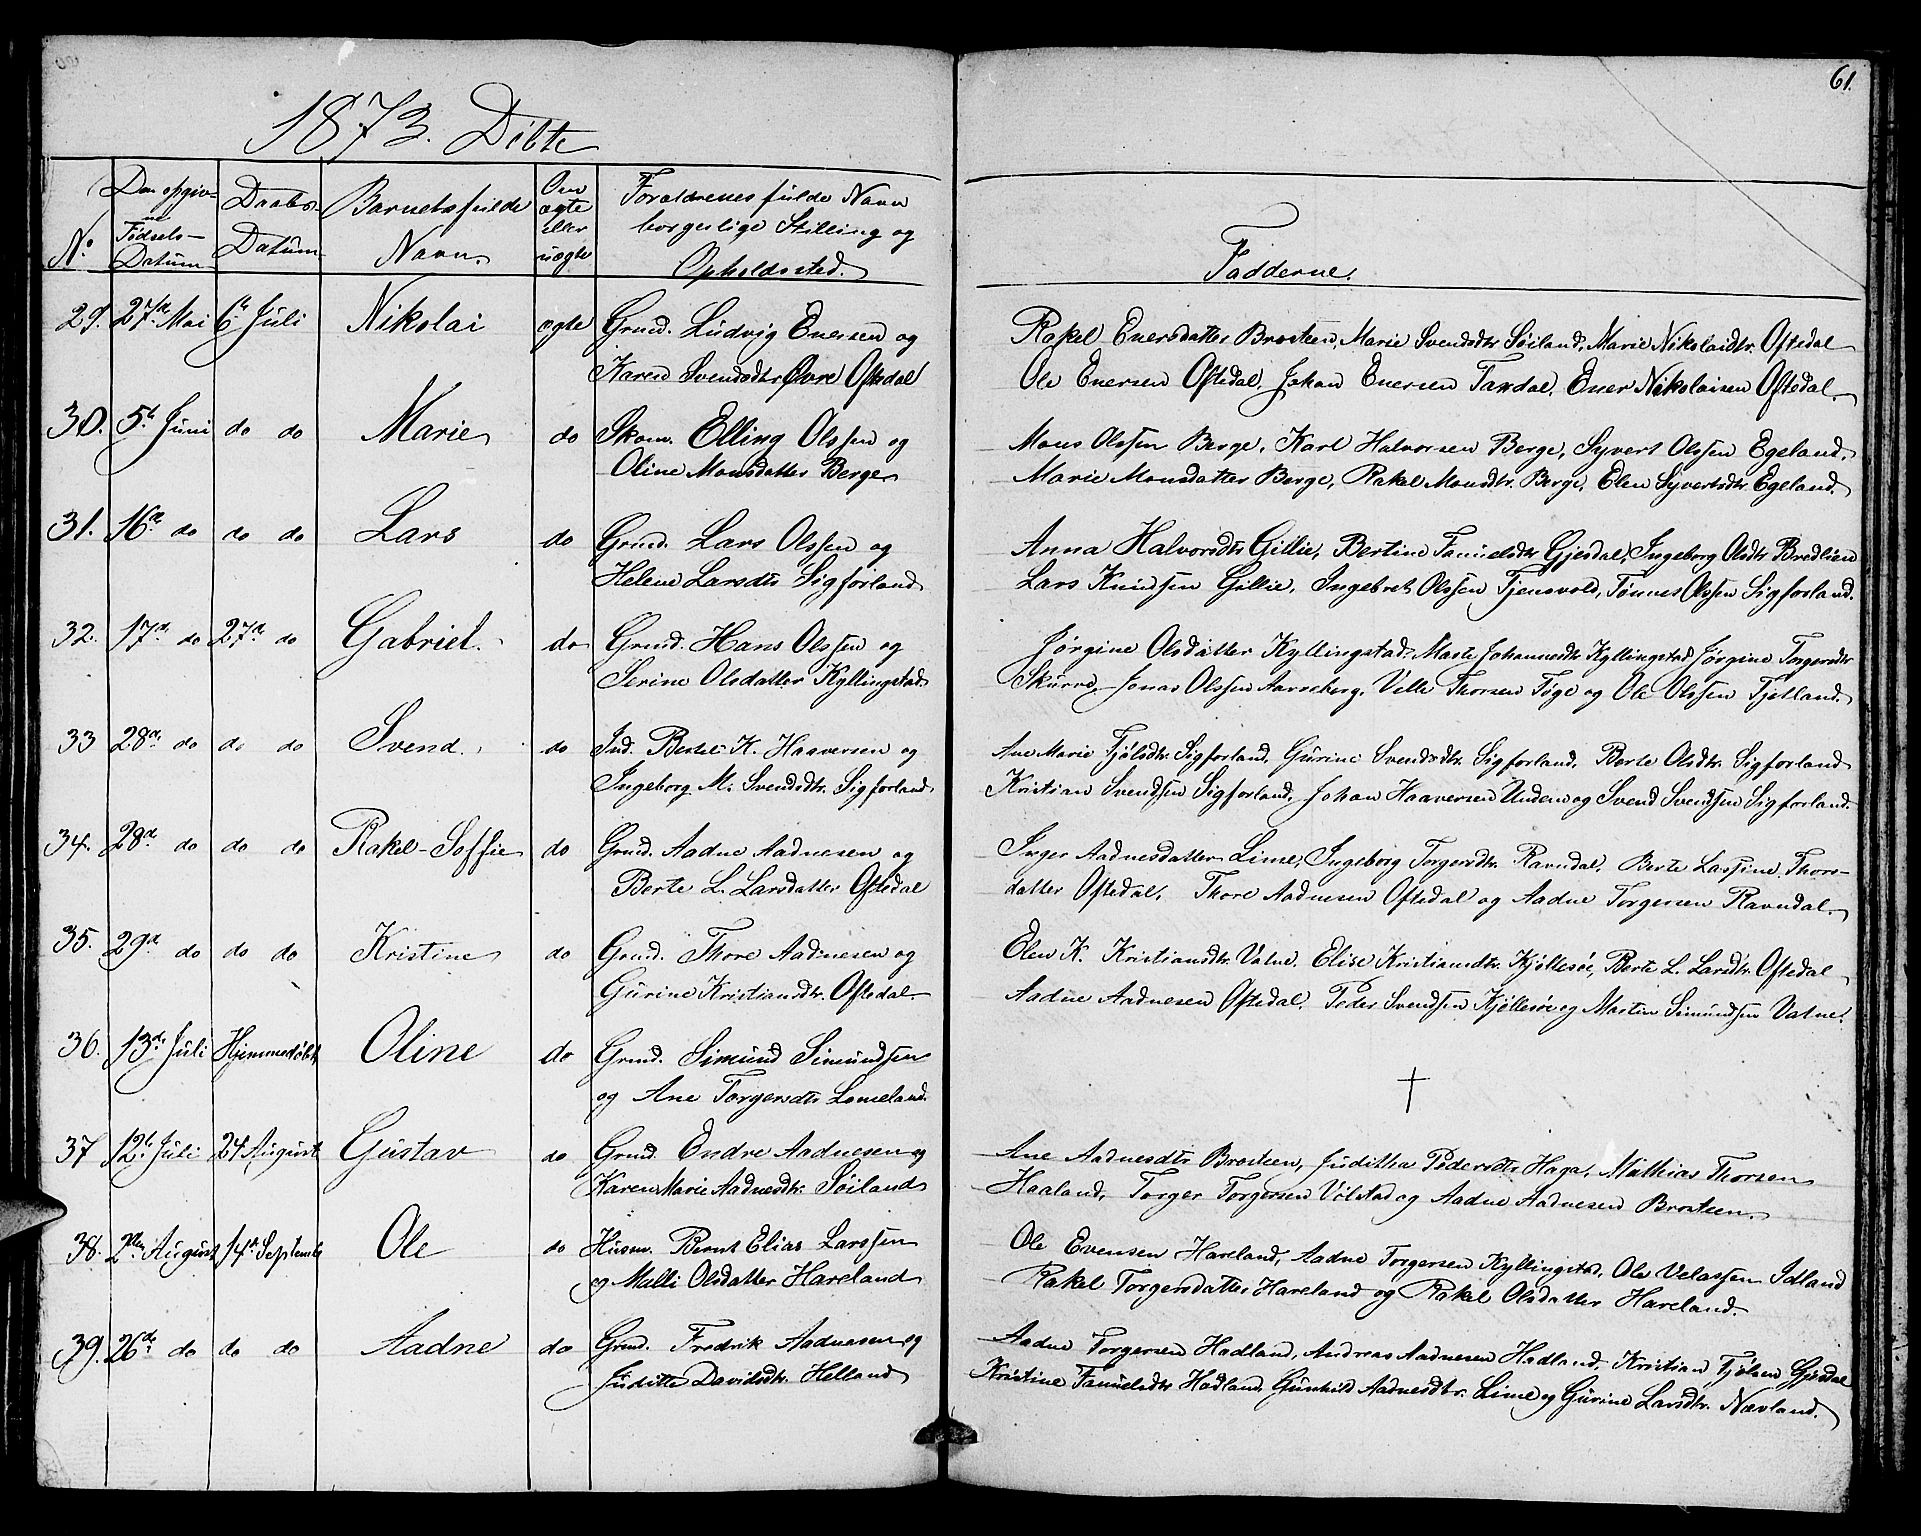 61.
1873. Döbte
No
Den opgivne Fødsels-Datum
Daabs-Datum
Barnets fulde Navn.
Om ægte eller uægte
Forældrenes fulde Navn borgerlige Stilling og Opholdssted.
Fadderne.
29. 27de Mai 6te Juli Nikolai ægte Grmd. Ludvig Enersen og
Karen Svendsdtr. Øvre Oftedal
Rakel Enersdatter Brosteen, Marie Svendsdtr Söiland, Marie Nikolaidtr. Oftedal
Ole Enersen Oftedal, Johan Enersen Tandal, Ener Nikolaisen Oftedal.
30. 5te Juni do do Marie do Skom. Elling Olssen og
Oline Monsdatter Berge
Mons Olssen Berge, Karl Halvorsen Berge, Syvert Olssen Egeland,
Marie Monsdatter Berge, Rakel Monsdtr. Berge, Elen Syvertsdtr Egeland.
31. 16de do do do Lars do Grmd. Lars Olssen og
Helene Larsdtr Sigforland
Anna Halvorsdtr Gillie, Bertine Fanuelsdtr Gjesdal, Ingeborg Olsdtr Bredlien
Lars Knudsen Gillie, Ingebret Olssen Tjensvold, Tönnes Olssen Sigforland.
32. 17de do 27de do Gabriel. do Grmd. Hans Olssen og
Serine Olsdatter Kyllingstad
Jörgine Olsdatter Kyllingstad, Marte Johannesdtr Kyllingstad Jörgine Torgersdtr
Skurve, Jonas Olssen Aarreberg, Velle Thorsen Töge og Ole Olssen Tjotland.
33 28de do do do Svend. do Ind. Bertel K. Haaversen og
Ingeborg M. Svendsdtr. Sigforland
Ane Marie Fjölsdtr. Sigforland, Gurine Svendsdtr. Sigforland, Berte Olsdtr. Sigforland
Kristian Svendsen Sigforland, Johan Haaversen Undem og Svend Svendsen Sigforland.
34. 28de do do do Rakel-Soffie do Grmd. Aadne Aadnesen og
Berte L. Larsdatter Oftedal
Inger Aadnesdatter Lime, Ingeborg Torgersdtr. Ravndal, Berte Lassine Thors-
datter Oftedal, Thore Aadnesen Oftedal og Aadne Torgersen Ravndal.
35. 29de do do do Kristine do Grmd. Thore Aadnesen og
Gurine Kristiansdtr. Oftedal
Elen K. Kristiansdtr. Valne. Elise Kristiansdtr. Kjöllesöe, Berte L. Larsdtr. Oftedal
Aadne Aadnesen Oftedal, Peder Svendsen Kjöllesöe og Martin Simundsen Valne.
36. 13de Juli Hjemmedöbt Oline do Grmd. Simund Simundsen
og Ane Torgersdtr Lomeland.
†
37 12te Juli 24 August Gustav do Grmd. Endre Aadnesen og
Karen Marie Aadnesdtr. Söiland
Ane Aadnesdtr Brosteen, Juditha Pedersdtr Haga, Mathias Thorsen
Haaland, Torger Torgersen Völstad og Aadne Aadnesen Brosteen.
38. 2den August 14de Septemb Ole do Husm. Bernt Elias Larssen
og Malli Olsdatter Haveland
Ole Evensen Haveland, Aadne Torgersen Kyllingstad, Ole Velassen Idland
Rakel Torgersdatter Haveland og Rakel Olsdatter Haveland.
39. 26de do do do Aadne do Grmd. Fredrik Aadnesen og
Juditte Davidsdtr. Helland
Aadne Torgersen Hadland, Andreas Aadnesen Hadland, Kristian Fjölsen Gjesdal
Kristine Fanuelsdtr Hadland, Gunhild Aadnesdtr. Lime og Gurine Larsdtr. Nævland.